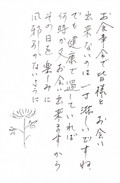 お食事会で皆様と お会い
出来ないのは 一寸 淋しいですね
でも健康で過していれば
何時か又 お会い出来ますから
その日を楽みに
風邪ひかないように